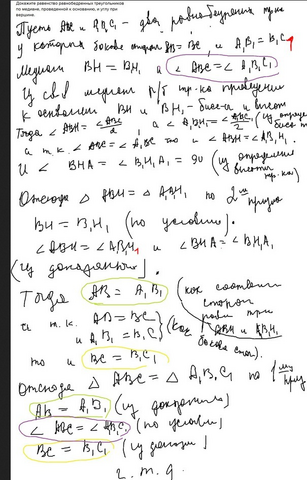 Докажите равенство равнобедренных треугольников
по медиане, проведенной к основанию, и углу при
вершине.
Пусть ABC и A₁B₁C₁ - два равнобедренных треуг
у которых боковые стороны AB = BC и A₁B₁ = B₁C₁
Медианы BH = B₁H₁ а ∠ABC = ∠A₁B₁C₁
Из св-в медианы р/б тр-ка проведения
к основанию BH и B₁H₁ - бисс-а и высот
Тогда ∠ABH = ∠ABC/2, а ∠A₁B₁H₁ = ∠A₁B₁C₁/2 (из опред
бисс
а т.к. ∠ABC = ∠A₁B₁C₁ то и ∠ABH = ∠A₁B₁H₁
И ∠BHA = ∠B₁H₁A₁ = 90 (из определения
высоты
тр-ка)
Отсюда △ABH = △A₁B₁H₁ по 2му
призн
BH = B₁H₁ (по условию).
∠ABH = ∠A₁B₁H₁ и ∠BHA = ∠B₁H₁A₁
(из доказанных).
Тогда AB = A₁B₁ (как соответ
сторон
равн тр
ABH и A₁B₁H₁
и т.к. AB = BC
и A₁B₁ = B₁C₁ (как
бокова стор).
то и BC = B₁C₁
Отсюда △ABC = △A₁B₁C₁ по 1му
призн
AB = A₁B₁ (из доказанного
∠ABC = ∠A₁B₁C₁ (по условию
BC = B₁C₁ (из доказан
ч. т. д.